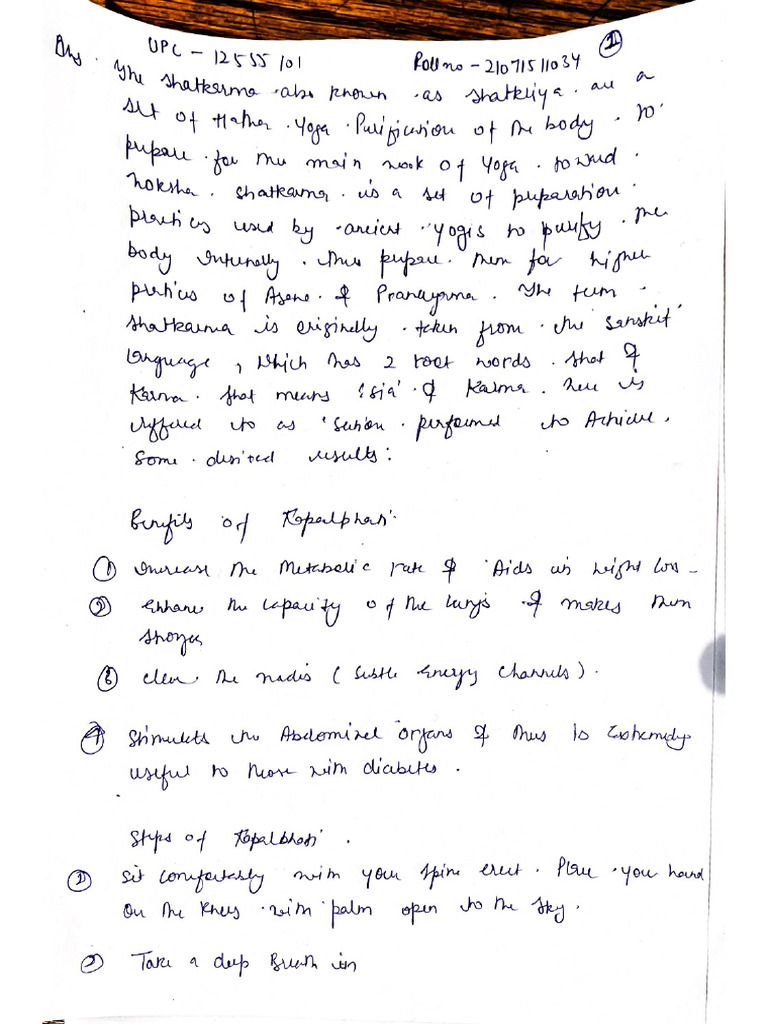 UPC - 12555101 Roll no - 21071511034 1
Ans. The Shatkarma also known as Shatkriya are a
set of Hatha Yoga Purification of the body. to
prepare for the main work of Yoga toward
Moksha. Shatkarma is a set of preparation
practices used by ancient Yogis to purify the
body internally. thus prepare them for higher
pratices of Asana & Pranayama. The term
Shatkarma is originally taken from the Sanskit
language, which has 2 root words. Shat &
Karma. Shat means 'six' & Karma. here is
reffered to as performed to Achieve
some desired results:
Benefits of Kapalbhati
1 Increase the Metabolic rate & Aids in weight loss -
2 Enhance the capacity of the lungs & makes them

3 Clear the nadis (Subtle Energy Channels).
4 Stimulets the Abdominal organs & thus is Extremely
useful to those with diabetes.
Steps of Kapalbhati.
1 Sit comfortably with your spine erect. Place your hand
on the knees with palm open to the sky.
2 Take a deep Breath in